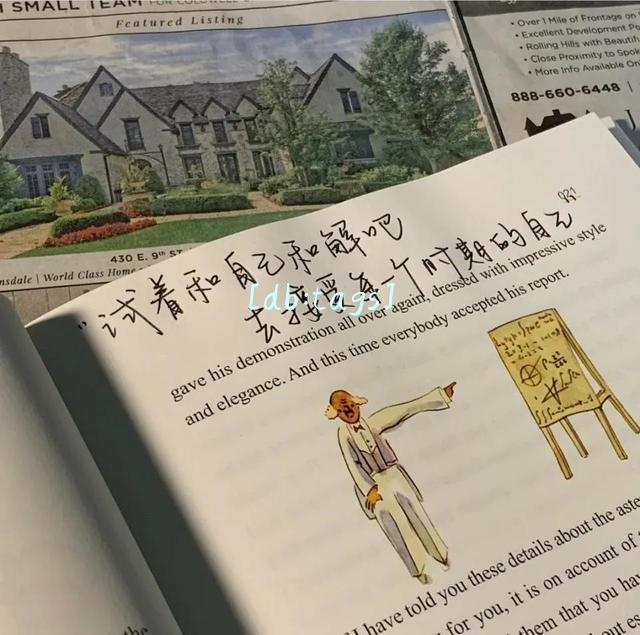 SMALL TEAM
Featured Listing
• Over 1 Mile of Frontage on
• Excellent Development Po
• Rolling Hills with Beautifu
• Close Proximity to Spok
• More Info Available On
888-660-6448
430 E. 9th ST
nsdale | World Class Home
“试着和自己和解吧
去接受每一个时期的自己”
[db:tags]
gave his demonstration all over again, dressed with impressive style
and elegance. And this time everybody accepted his report.
I have told you these details about the aste
for you, it is on account of
them that you have
out es
the